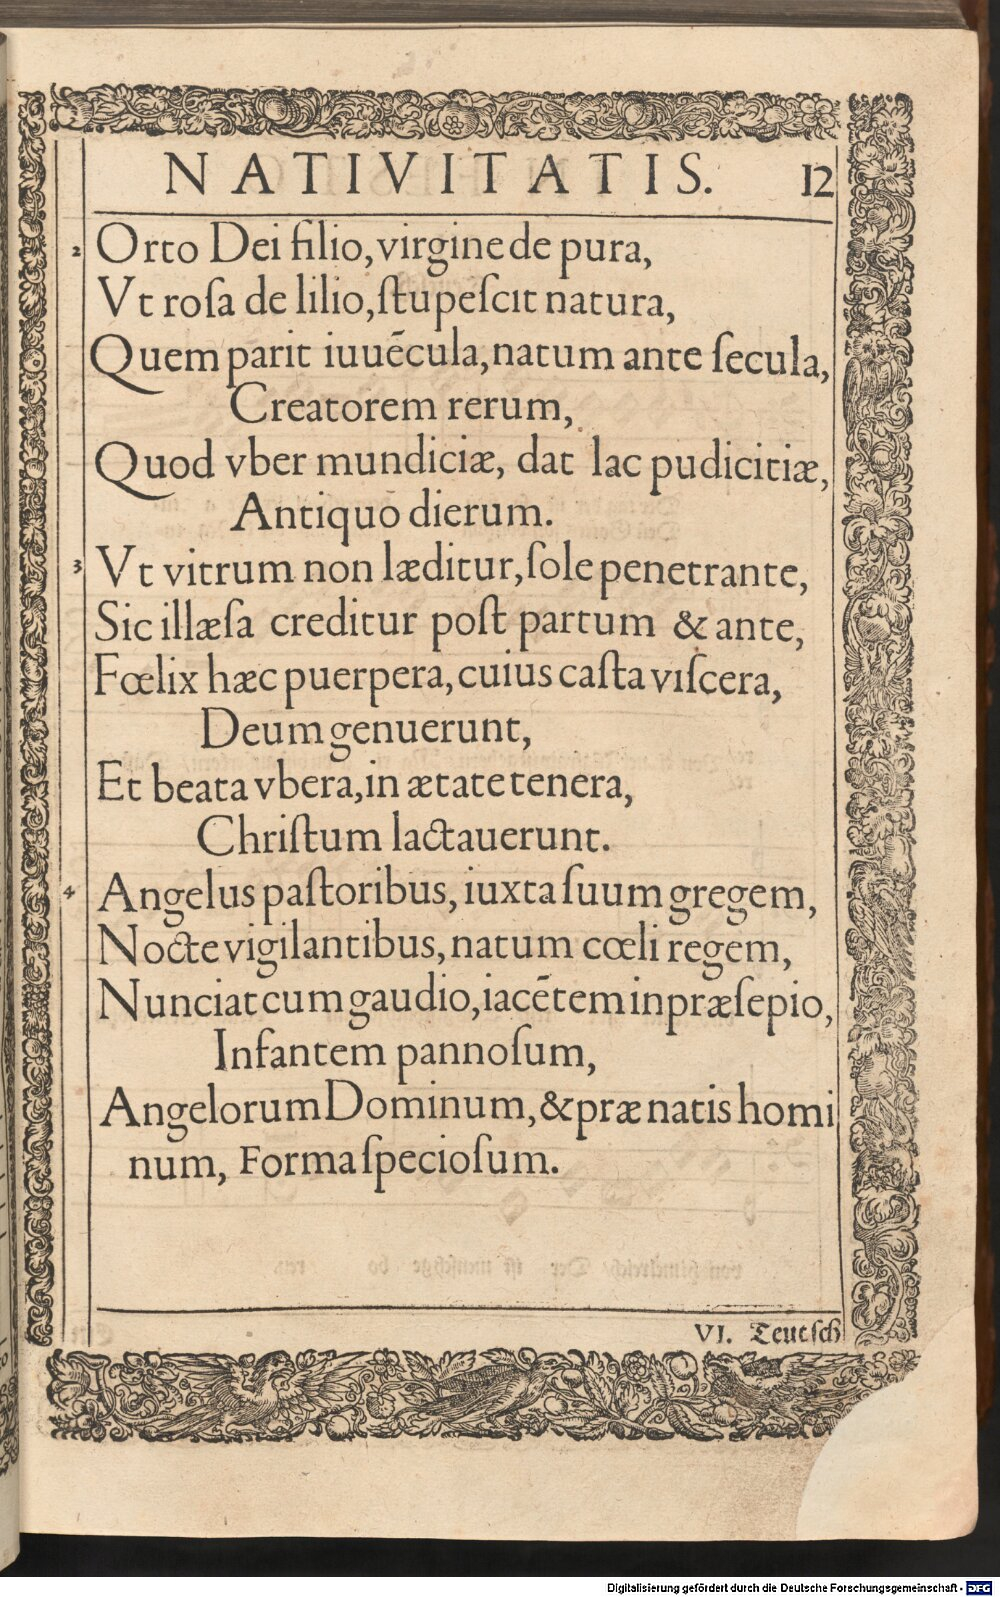 NATIVITATIS. 12
2 Orto Dei filio, virgine de pura,
Vt roſa de lilio, ſtupeſcit natura,
Quem parit iuuēcula, natum ante ſecula,
Creatorem rerum,
Quod vber mundiciæ, dat lac pudicitiæ,
Antiquo dierum.
3 Vt vitrum non læditur, ſole penetrante,
Sic illæſa creditur poſt partum & ante,
Fœlix hæc puerpera, cuius caſta viſcera,
Deum genuerunt,
Et beata vbera, in ætate tenera,
Chriſtum lactauerunt.
4 Angelus paſtoribus, iuxta ſuum gregem,
Nocte vigilantibus, natum cœli regem,
Nunciat cum gaudio, iacētem in præſepio,
Infantem pannoſum,
Angelorum Dominum, & præ natis homi
num, Forma ſpecioſum.
VI. Teutſch
Digitalisierung gefördert durch die Deutsche Forschungsgemeinschaft - DFG